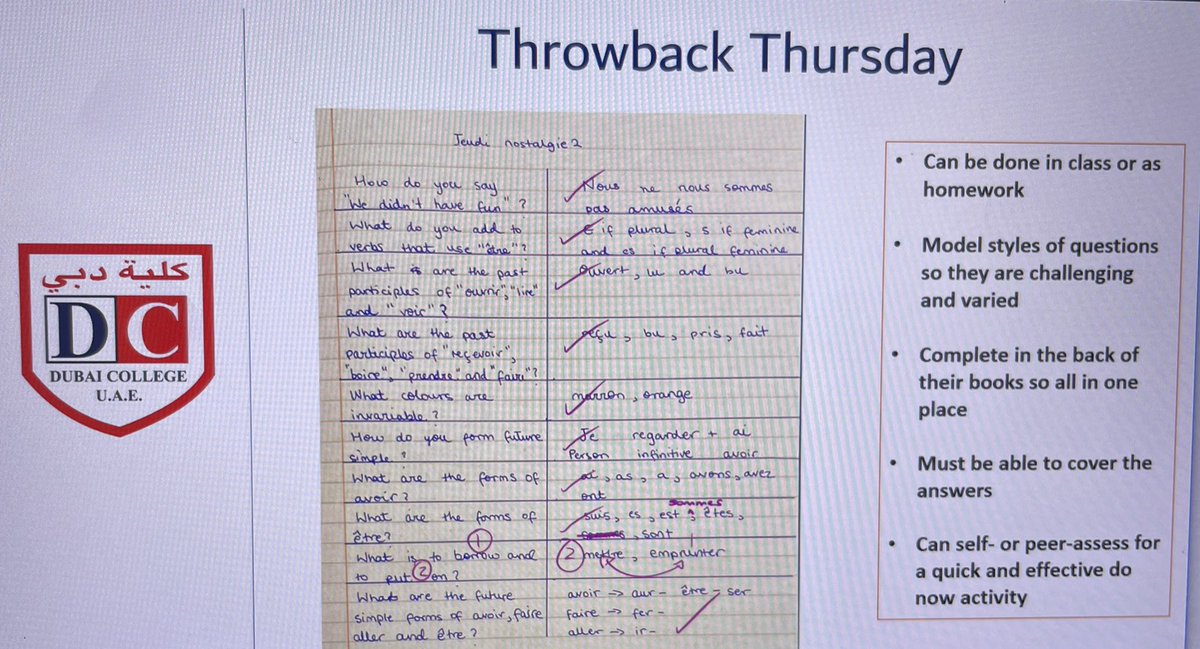 Throwback Thursday
كلية دبي
DC
DUBAI COLLEGE
U.A.E.
Jeudi nostalgie 2
How do you say
"We didn't have fun"?
Nous ne nous sommes
pas amusés
What do you add to
verbs that use "être"?
E if plural, s if feminine
and es if plural feminine
What are the past
participles of "ouvrir", "lire"
and "voir"?
ouvert, lu and bu
What are the past
participles of "reçevoir",
"boire", "prendre" and "faire"?
reçu, bu, pris, fait
What colours are
invariable?
marron, orange
How do you form future
simple?
Je regarder + ai
Person infinitive avoir
What are the forms of
avoir?
ai, as, a, avons, avez
ont
What are the forms of
être?
sommes
suis, es, est, êtes,
sont
1
What is to borrow and
to put 2 on?
2 mettre, emprunter
Whats are the future
simple forms of avoir, faire
aller and être?
avoir → aur- être - ser
faire → fer-
aller → ir-
• Can be done in class or as
homework
• Model styles of questions
so they are challenging
and varied
• Complete in the back of
their books so all in one
place
• Must be able to cover the
answers
• Can self- or peer-assess for
a quick and effective do
now activity